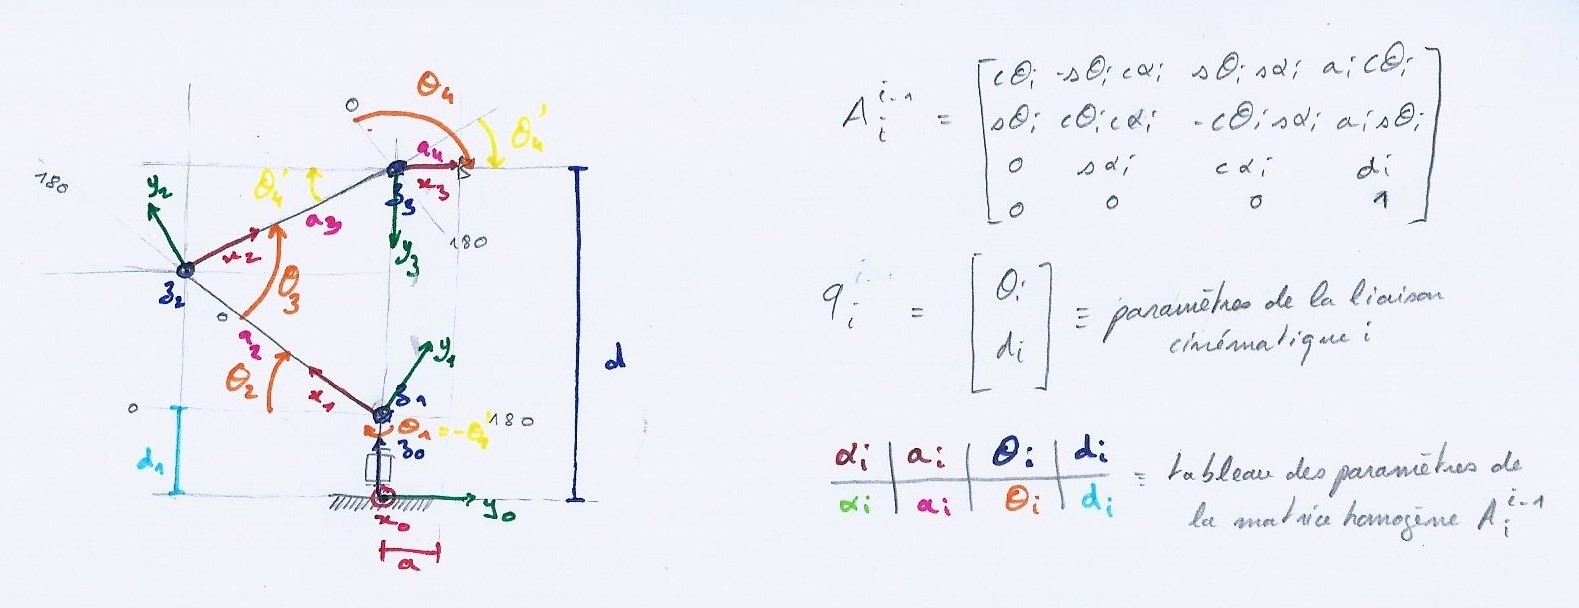 θ₄
0
θ₄'
a₄
180
y₂
θ₄'
x₃
z₃
a₃
x₂
180
y₃
θ₃
z₂
0
a₂
y₁
d
θ₂
x₁
z₁
0
180
θ₁ = -θ₁'
z₀
d₁
y₀
x₀
a
A_i^{i-1} = [ cθi -sθi cαi sθi sαi ai cθi
sθi cθi cαi -cθi sαi ai sθi
0 sαi cαi di
0 0 0 1 ]
q_i = [ θi
di ] ≡ paramètres de la liaison
cinématique i
αi | ai | θi | di
αi | ai | θi | di ≡ tableau des paramètres de
la matrice homogène A_i^{i-1}